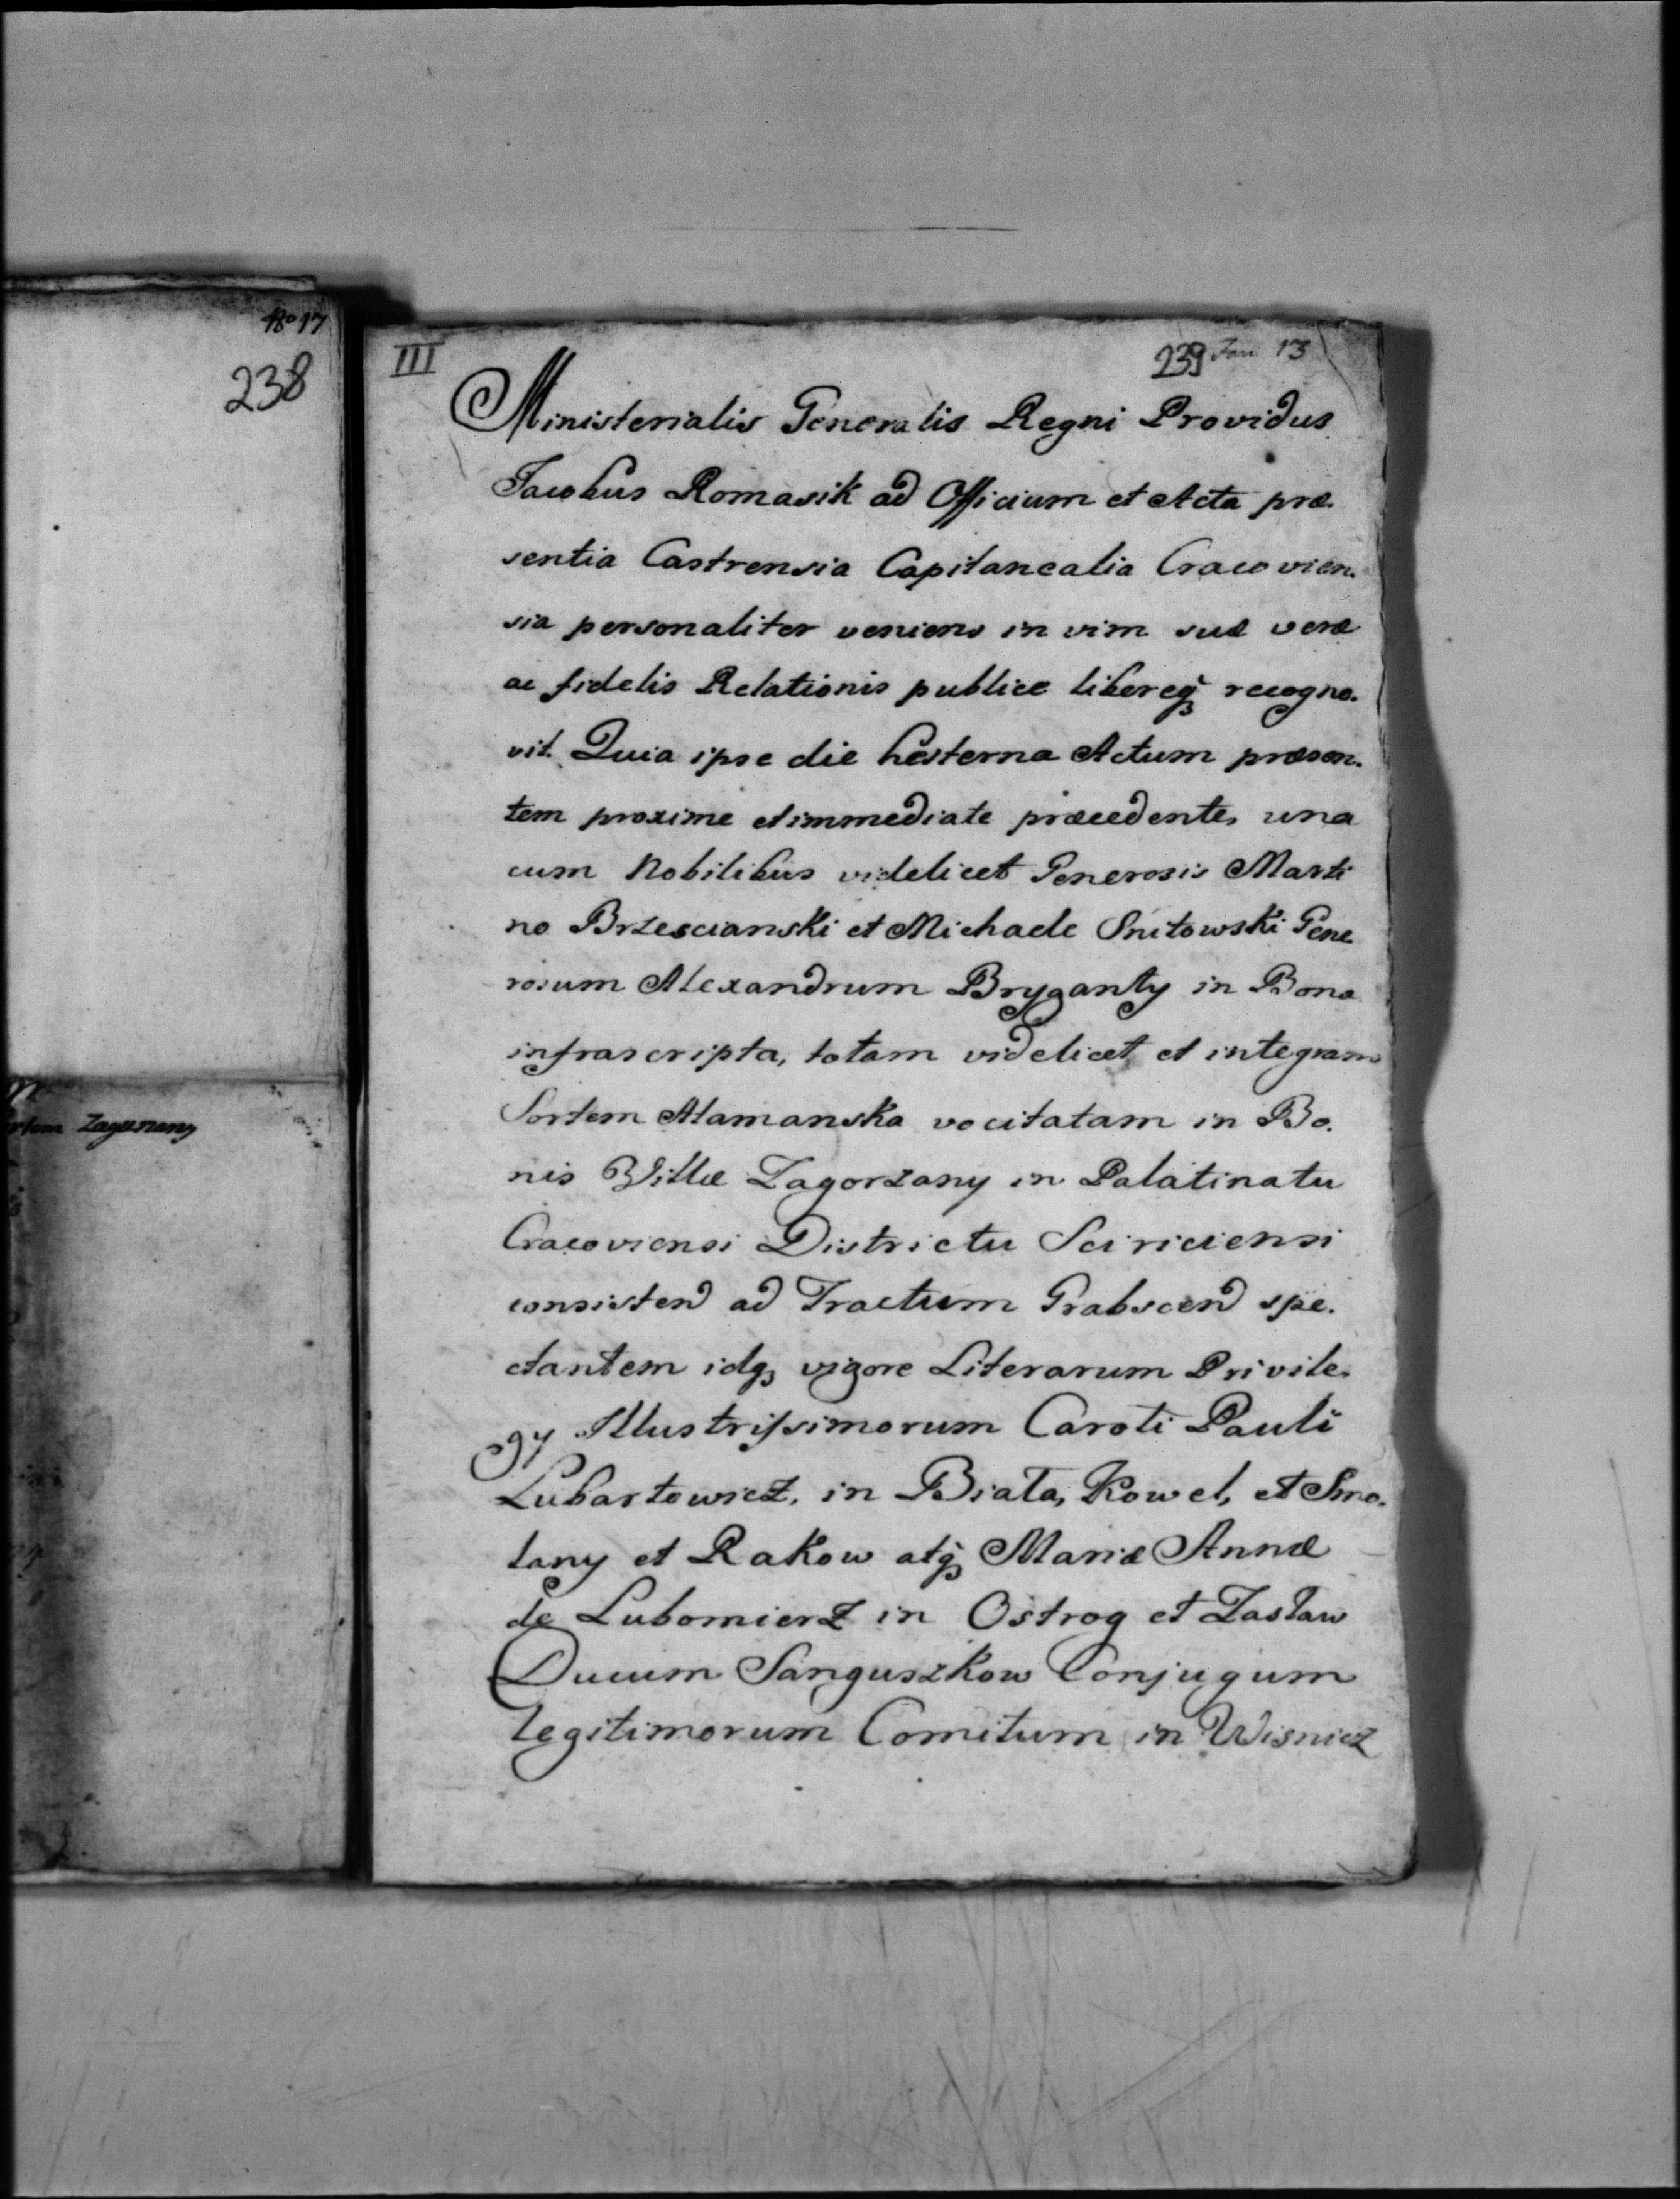 No 17
238
Zagurzany
III
239 Jan 13
Ministerialis Generalis Regni Providus
Jacobus Romasik ad Officium et Acta præ-
sentia Castrensia Capitanealia Cracovien-
sia personaliter veniens in vim suæ veræ
ac fidelis Relationis publice libereq3 recogno-
vit. Quia ipse die hesterna Actum præsen-
tem proxime et immediate præcedente, una
cum Nobilibus videlicet Generosis Marti
no Brzescianski et Michaele Snitowski Gene
rosum Alexandrum Bryganty in Bona
infrascripta, totam videlicet et integram
Sortem Alamanska vocitatam in Bo-
nis Villæ Zagorzany in Palatinatu
Cracoviensi Districtu Sciriciensi
consisten ad Tractum Grabscen spe-
ctantem idq3 vigore Literarum Privile-
gy Illustrissimorum Caroli Pauli
Lubartowicz, in Biała, Kowel, et Smo-
lany et Rakow atq3 Mariæ Annæ
de Lubomierz in Ostrog et Zasław
Ducum Sanguszkow Conjugum
legitimorum Comitum in Wisnicz